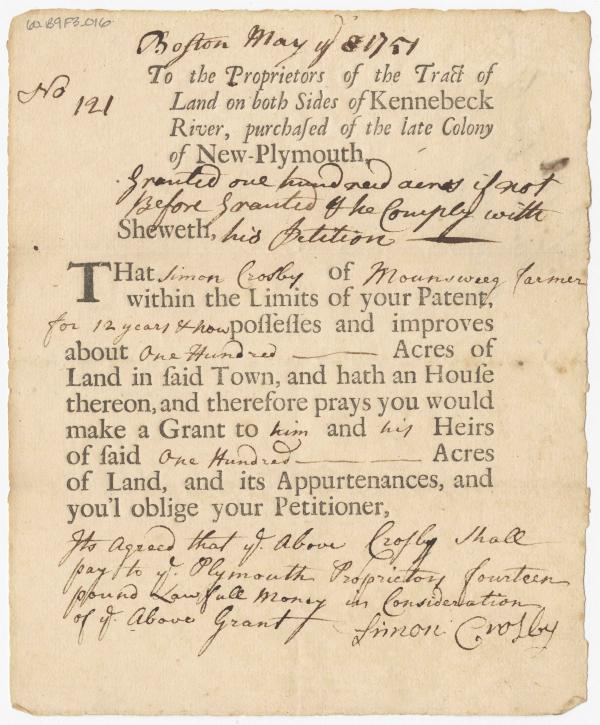 60.B9F3.016
Boston May ye 8 1751
No 121
To the Proprietors of the Tract of
Land on both Sides of Kennebeck
River, purchaſed of the late Colony
of New-Plymouth,
Granted one hundred acres if not
Before Granted & he Comply with
Sheweth, his Petition
THat Simon Crosby of Mounsweeg farmer
within the Limits of your Patent,
for 12 years & now poſſeſſes and improves
about One Hundred Acres of
Land in ſaid Town, and hath an Houſe
thereon, and therefore prays you would
make a Grant to him and his Heirs
of ſaid One Hundred Acres
of Land, and its Appurtenances, and
you'l oblige your Petitioner,
Its Agreed that ye Above Crosby Shall
pay to ye Plymouth Proprietors fourteen
pound Lawfull Money in Consideration
of ye Above Grant Simon Crosby